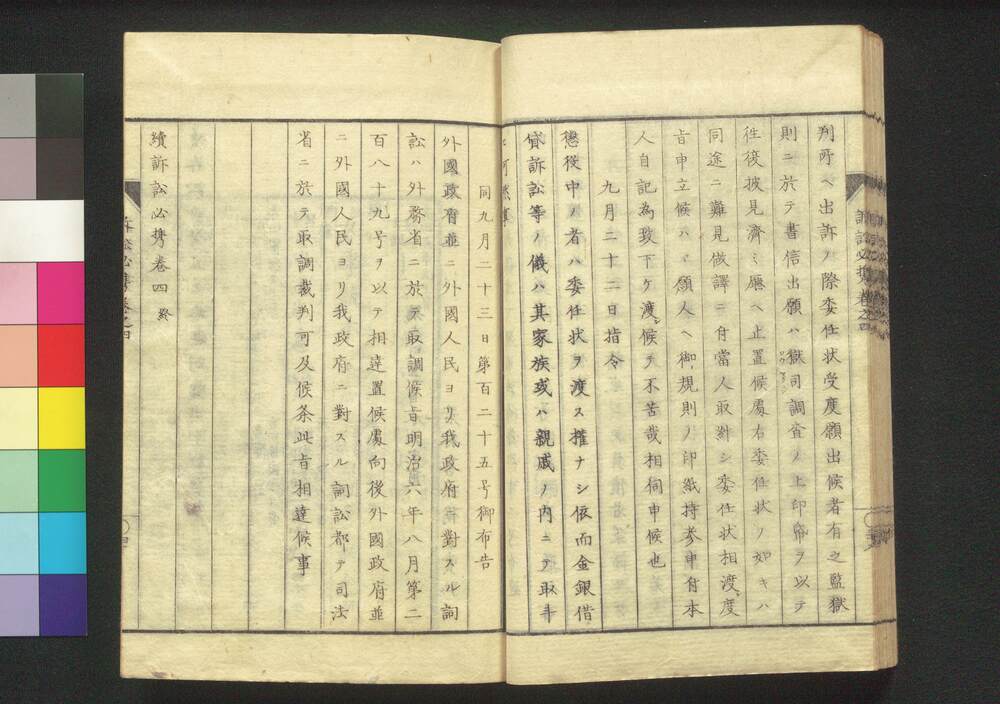 判所ヘ出訴ノ際委任状受度願出候者有之監獄
則ニ於テ書信出願ハ獄司調査ノ上印帋ヲ以テ
往復披見済ミ廳ヘ止置候處右委任状ノ如キハ
同途ニ難見做譯ニ付當人取糾シ委任状相渡度
旨申立候ハヾ願人ヘ御規則ノ印紙持参申付本
人自記為致下ケ渡候テ不苦哉相伺申候也
九月二十二日指令
懲役中ノ者ハ委任状ヲ渡ス権ナシ依而金銀借
貸訴訟等ノ儀ハ其家族或ハ親戚ノ内ニテ取斗
同九月二十三日第百二十五号御布告
外國政府並ニ外國人民ヨリ我政府ニ對スル詞
訟ハ外務省ニ於テ取調候旨明治六年八月第二
百八十九号ヲ以テ相達置候處向後外國政府並
ニ外國人民ヨリ我政府ニ對スル詞訟都テ司法
省ニ於テ取調裁判可及候条此旨相達候事
續訴訟必携巻四 終